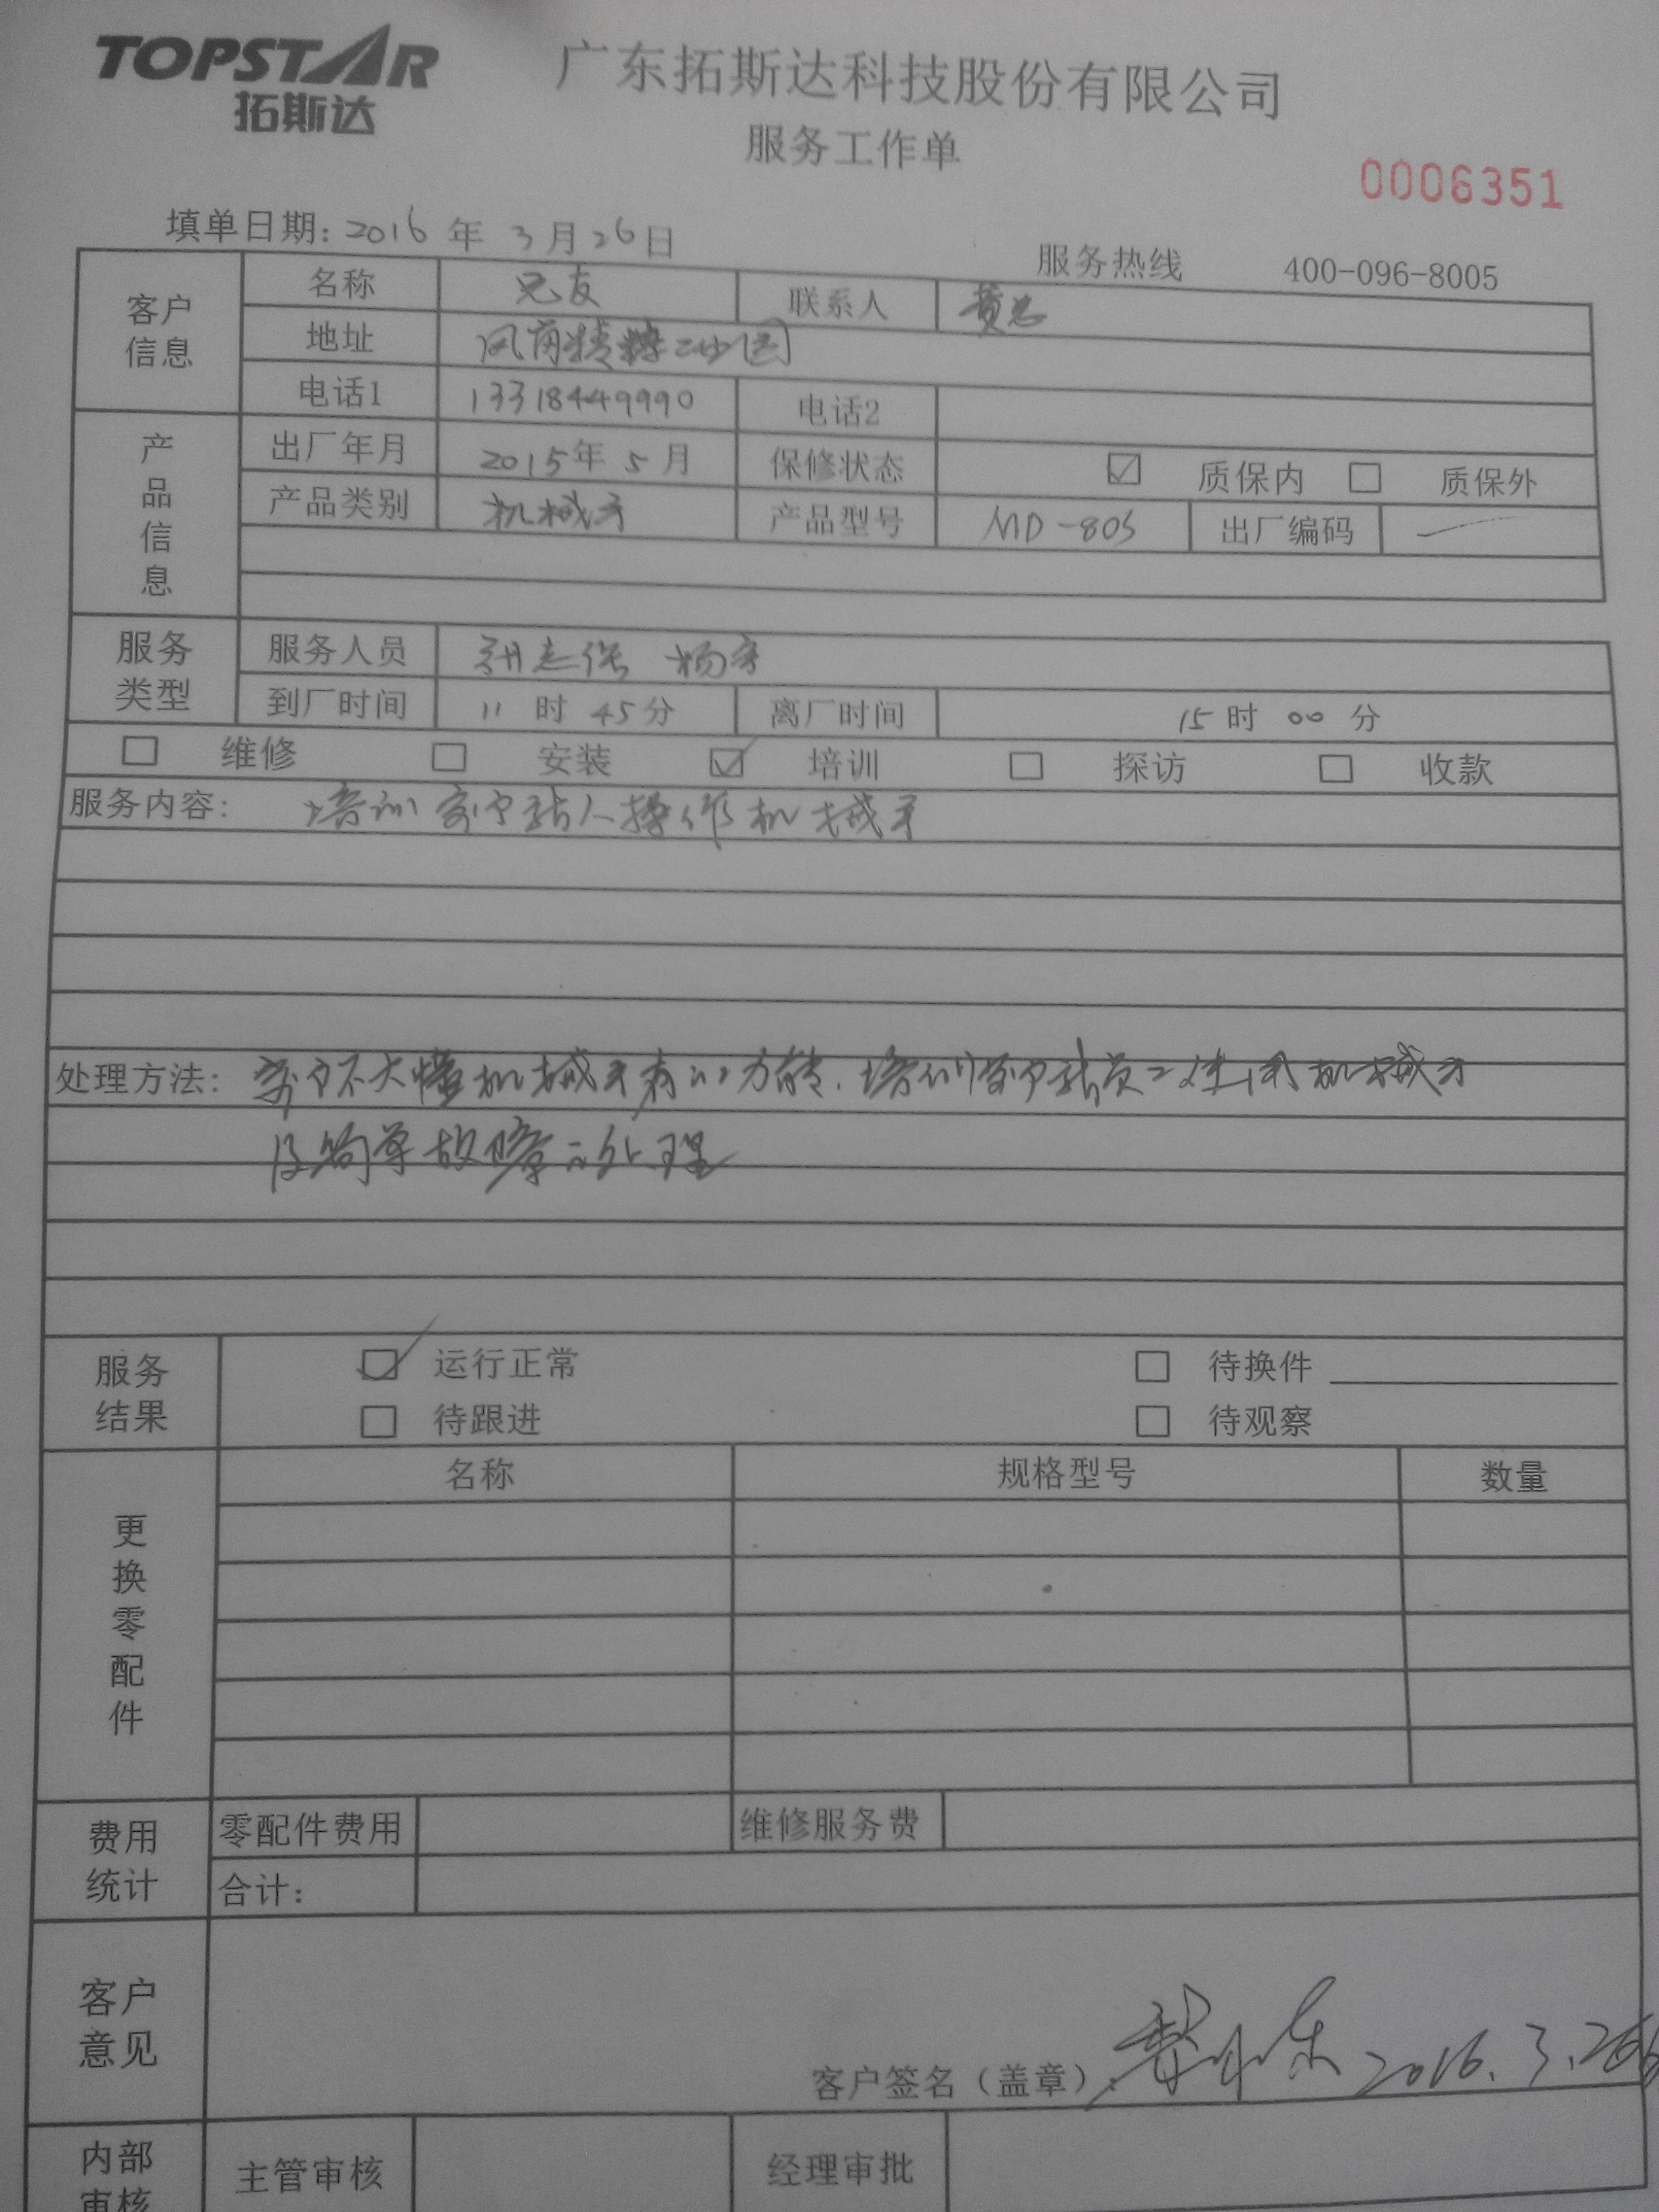 TOPSTAR
拓斯达
广东拓斯达科技股份有限公司
服务工作单
0006351
填单日期: 2016 年 3 月 26 日
服务热线 400-096-8005
客户信息
名称 兄友 联系人 黄总
地址
电话1 13318449990 电话2
产品信息
出厂年月 2015年 5 月 保修状态 ☑ 质保内 □ 质保外
产品类别 机械手 产品型号 MD-80S 出厂编码 —
服务类型
服务人员
到厂时间 11 时 45分 离厂时间 15 时 00 分
□ 维修 □ 安装 ☑ 培训 □ 探访 □ 收款
服务内容: 培训客户技人操作机械手
处理方法: 客户不大懂机械手有的功能.培训客户技员工使用机械手
及简单故障的处理
服务结果
☑ 运行正常 □ 待换件
□ 待跟进 □ 待观察
更换零配件
名称 规格型号 数量
费用统计
零配件费用 维修服务费
合计:
客户意见
客户签名(盖章): 2016.3.26
内部审核
主管审核 经理审批